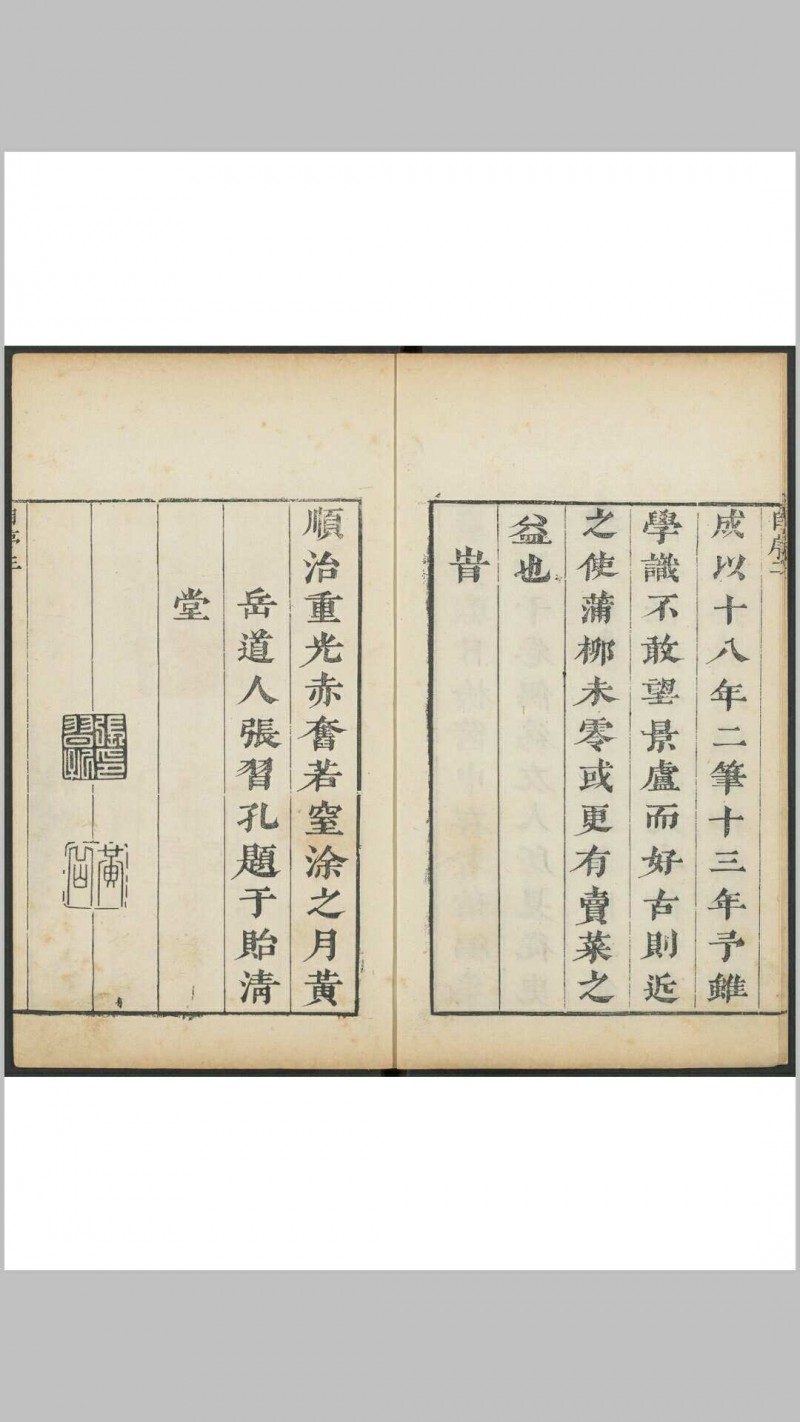 成以十八年二筆十三年予雖
學識不敢望景盧而好古則近
之使蒲柳未零或更有賣菜之
益也
旹
順治重光赤奮若窒涂之月黃
岳道人張習孔題于貽清
堂
張習孔印
黃岳